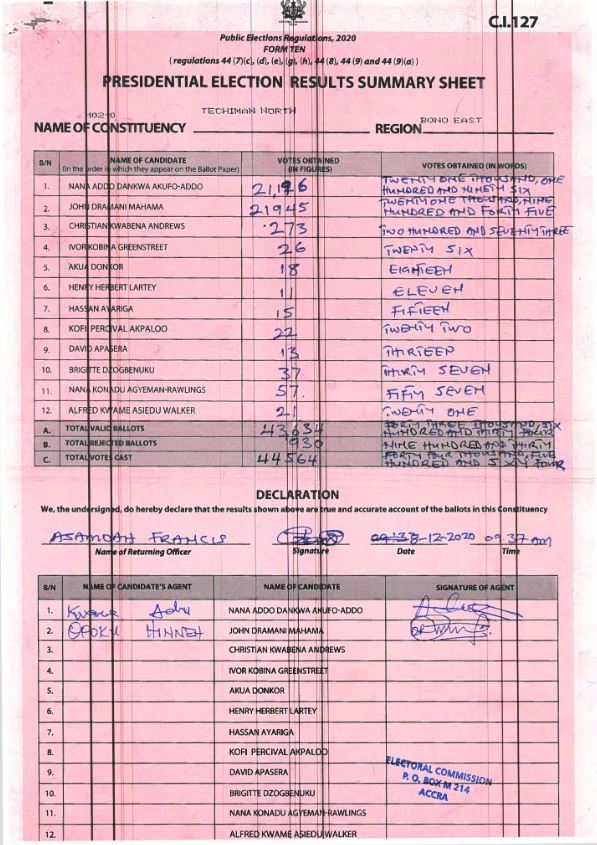 C.I.127
Public Elections Regulations, 2020
FORM TEN
( regulations 44 (7)(c), (d), (e), (g), (h), 44 (8), 44 (9) and 44 (9)(a) )
PRESIDENTIAL ELECTION RESULTS SUMMARY SHEET
TECHIMAN NORTH
BONO EAST
NAME OF CONSTITUENCY REGION
S/N NAME OF CANDIDATE (In the order in which they appear on the Ballot Paper) VOTES OBTAINED (IN FIGURES) VOTES OBTAINED (IN WORDS)
1. NANA ADDO DANKWA AKUFO-ADDO 21,196 TWENTY ONE THOUSAND, ONE HUNDRED AND NINETY SIX
2. JOHN DRAMANI MAHAMA 21945 TWENTY ONE THOUSAND, NINE HUNDRED AND FORTY FIVE
3. CHRISTIAN KWABENA ANDREWS 273 TWO HUNDRED AND SEVENTY THREE
4. IVOR KOBINA GREENSTREET 26 TWENTY SIX
5. AKUA DONKOR 18 EIGHTEEN
6. HENRY HERBERT LARTEY 11 ELEVEN
7. HASSAN AYARIGA 15 FIFTEEN
8. KOFI PERCIVAL AKPALOO 22 TWENTY TWO
9. DAVID APASERA 13 THIRTEEN
10. BRIGITTE DZOGBENUKU 37 THIRTY SEVEN
11. NANA KONADU AGYEMAN-RAWLINGS 57 FIFTY SEVEN
12. ALFRED KWAME ASIEDU WALKER 21 TWENTY ONE
A. TOTAL VALID BALLOTS 43634 FORTY THREE THOUSAND, SIX HUNDRED AND THIRTY FOUR
B. TOTAL REJECTED BALLOTS 930 NINE HUNDRED AND THIRTY
C. TOTAL VOTES CAST 44564 FORTY FOUR THOUSAND, FIVE HUNDRED AND SIXTY FOUR
DECLARATION
We, the undersigned, do hereby declare that the results shown above are true and accurate account of the ballots in this Constituency
ASAMOAH FRANCIS -12-2020 09:37 AM
Name of Returning Officer Signature Date Time
S/N NAME OF CANDIDATE'S AGENT NAME OF CANDIDATE SIGNATURE OF AGENT
1. NANA ADDO DANKWA AKUFO-ADDO
2. OPOKU HINNEH JOHN DRAMANI MAHAMA
3. CHRISTIAN KWABENA ANDREWS
4. IVOR KOBINA GREENSTREET
5. AKUA DONKOR
6. HENRY HERBERT LARTEY
7. HASSAN AYARIGA
8. KOFI PERCIVAL AKPALOO
9. DAVID APASERA
10. BRIGITTE DZOGBENUKU
11. NANA KONADU AGYEMAN-RAWLINGS
12. ALFRED KWAME ASIEDU WALKER
ELECTORAL COMMISSION
P. O. BOX M 214
ACCRA